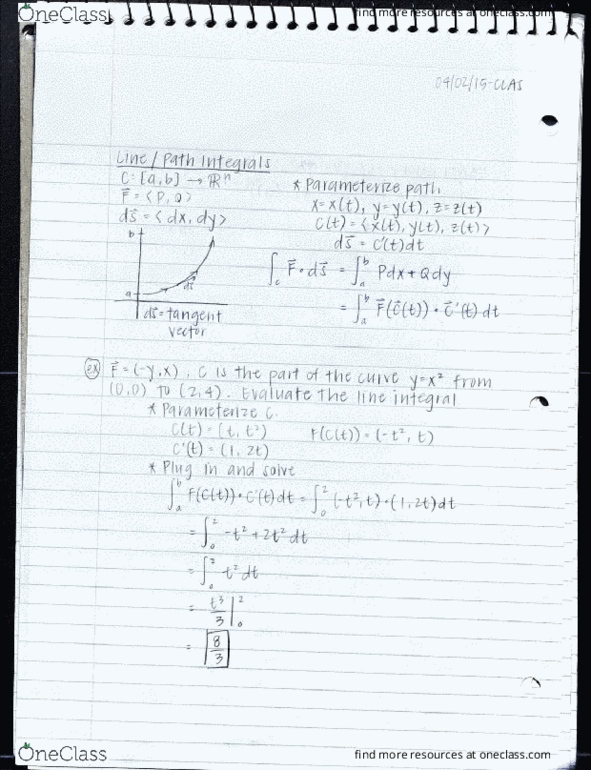 OneClass
find more resources at oneclass.com
04/02/15-CLAS
Line / Path Integrals
C: [a,b] → ℝⁿ
F⃗ = <P, Q>
ds⃗ = <dx, dy>
* Parameterize path:
x=x(t), y=y(t), z=z(t)
C(t) = <x(t), y(t), z(t)>
ds⃗ = C'(t)dt
b
a
ds⃗
ds⃗ = tangent
vector
∫_c F⃗ • ds⃗ = ∫_a^b Pdx + Qdy
= ∫_a^b F⃗(C⃗(t)) • C⃗'(t) dt
ex F⃗ = (-y, x), C is the part of the curve y=x² from
(0,0) TO (2,4). Evaluate the line integral
* Parameterize C.
C(t) = (t, t²) F(C(t)) = (-t², t)
C'(t) = (1, 2t)
* Plug in and solve
∫_a^b F(C(t)) • C'(t) dt = ∫_0^2 (-t², t) • (1, 2t) dt
= ∫_0^2 -t² + 2t² dt
= ∫_0^2 t² dt
= t³/3 |_0^2
= 8/3
OneClass
find more resources at oneclass.com